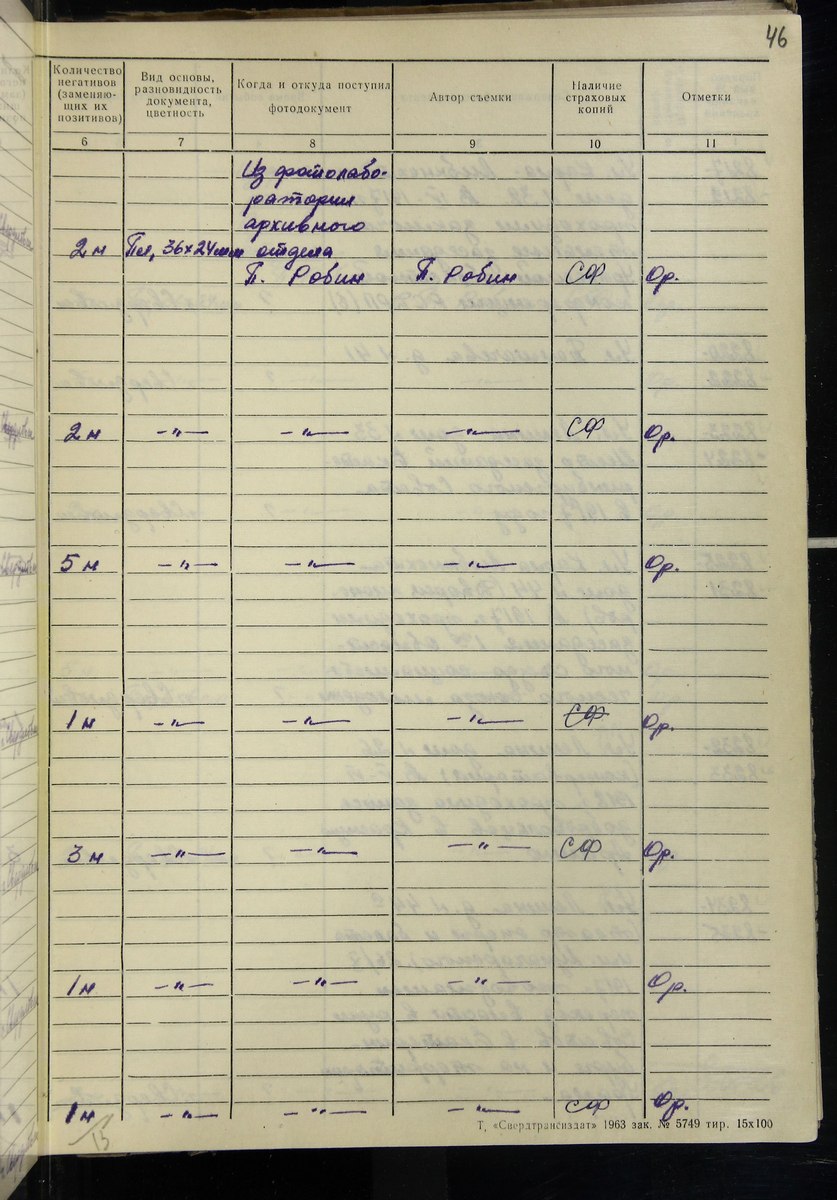 46
Количество негативов (заменяющих их позитивов) Вид основы, разновидность документа, цветность Когда и откуда поступил фотодокумент Автор съемки Наличие страховых копий Отметки
6 7 8 9 10 11
Из фотолабо-
ратории
архивного
2 н Пл, 36×24мм отдела
П. Робин П. Робин СФ Ор.
2 н —"— —"— —"— СФ Ор.
5 н —"— —"— —"— Ор.
1 н —"— —"— —"— СФ Ор.
3 н —"— —"— —"— СФ Ор.
1 н —"— —"— —"— Ор.
1 н —"— —"— —"— СФ Ор.
15
Т. «Свердтрансиздат» 1963 зак. № 5749 тир. 15х100